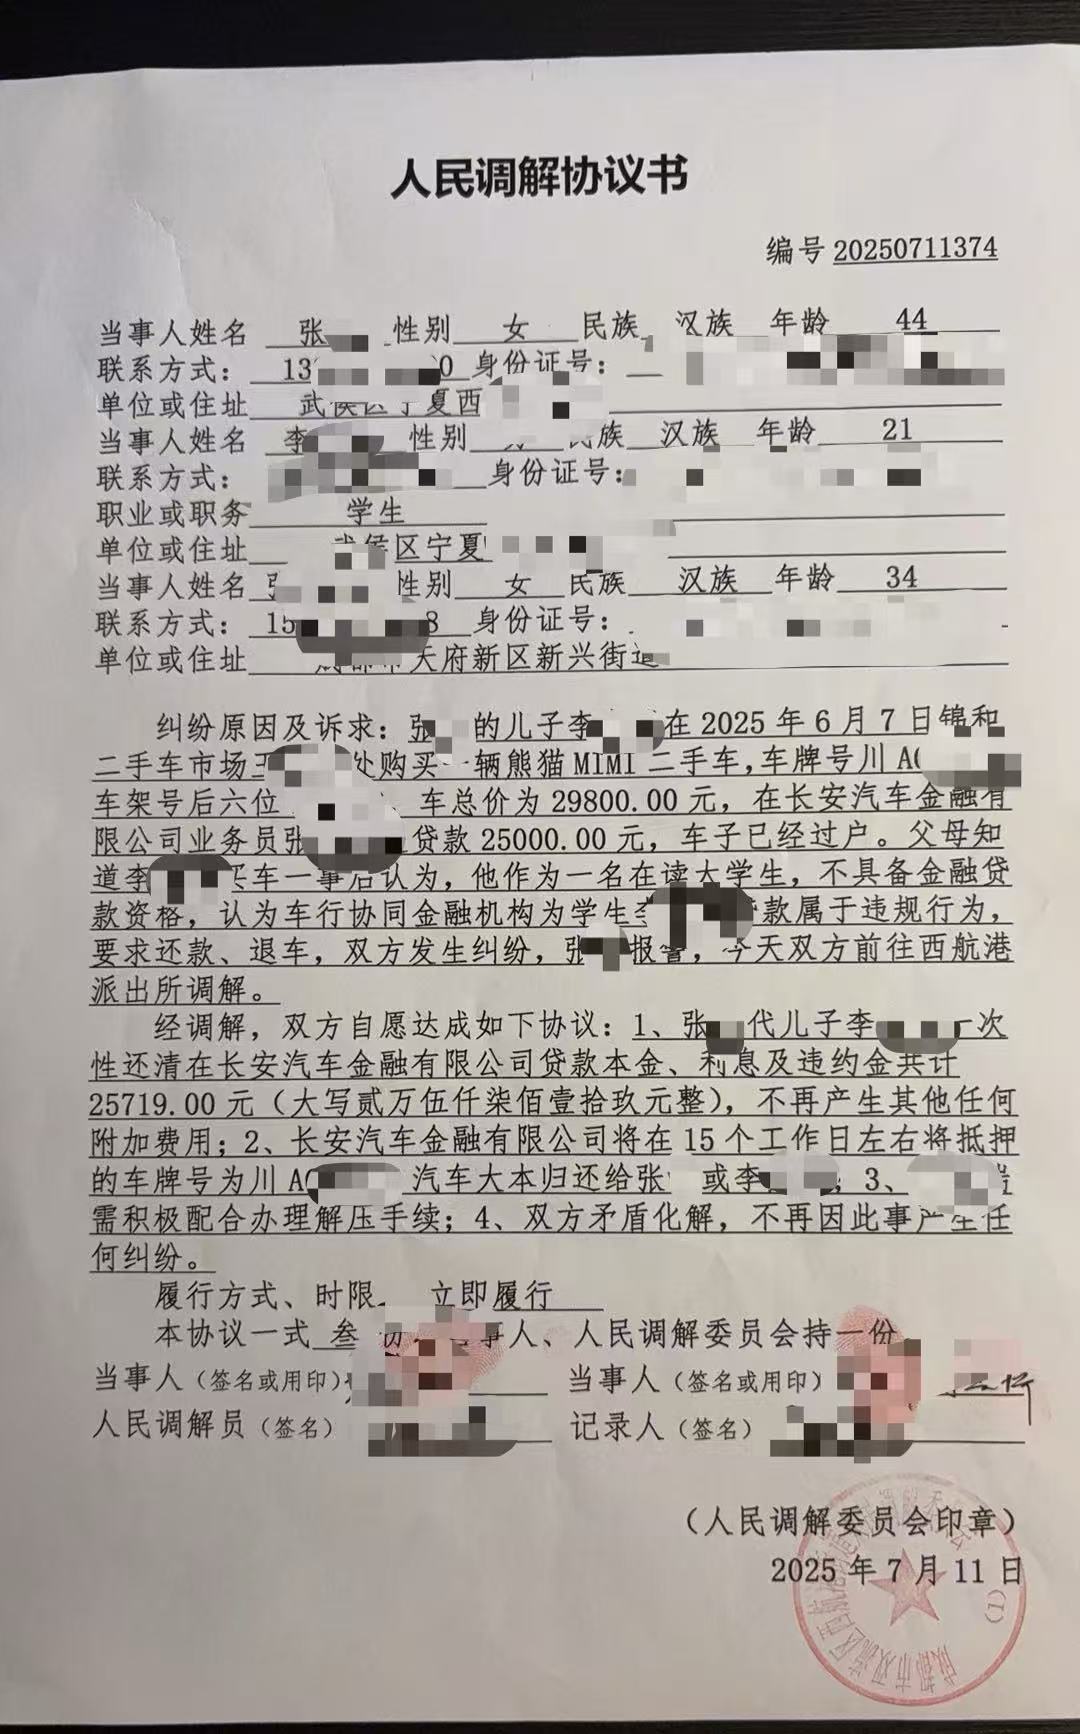 人民调解协议书
编号 20250711374
当事人姓名 张 性别 女 民族 汉族 年龄 44
联系方式: 13 0 身份证号:
单位或住址 武侯区宁夏西
当事人姓名 李 性别 民族 汉族 年龄 21
联系方式: 身份证号:
职业或职务 学生
单位或住址 武侯区宁夏
当事人姓名 张 性别 女 民族 汉族 年龄 34
联系方式: 15 8 身份证号:
单位或住址 成都市天府新区新兴街道
纠纷原因及诉求: 张 的儿子李 在 2025 年 6 月 7 日锦和
二手车市场王 处购买一辆熊猫 MIMI 二手车,车牌号川 A
车架号后六位 车总价为 29800.00 元, 在长安汽车金融有
限公司业务员张 贷款 25000.00 元, 车子已经过户。父母知
道李 买车一事后认为, 他作为一名在读大学生, 不具备金融贷
款资格, 认为车行协同金融机构为学生李 贷款属于违规行为,
要求还款、退车, 双方发生纠纷, 张 报警, 今天双方前往西航港
派出所调解。
经调解, 双方自愿达成如下协议: 1、张 代儿子李 一次
性还清在长安汽车金融有限公司贷款本金、利息及违约金共计
25719.00 元 (大写贰万伍仟柒佰壹拾玖元整), 不再产生其他任何
附加费用; 2、长安汽车金融有限公司将在 15 个工作日左右将抵押
的车牌号为川 A 汽车大本归还给张 或李 ; 3、
需积极配合办理解压手续; 4、双方矛盾化解, 不再因此事产生任
何纠纷。
履行方式、时限 立即履行
本协议一式 叁 份 事人、人民调解委员会持一份
当事人 (签名或用印) 当事人 (签名或用印)
人民调解员 (签名) 记录人 (签名)
(人民调解委员会印章)
2025 年 7 月 11 日
成都市双流区西航港 (1)